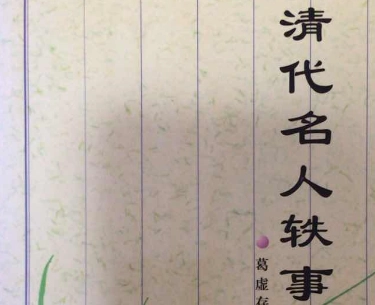 清代名人轶事
葛虚存